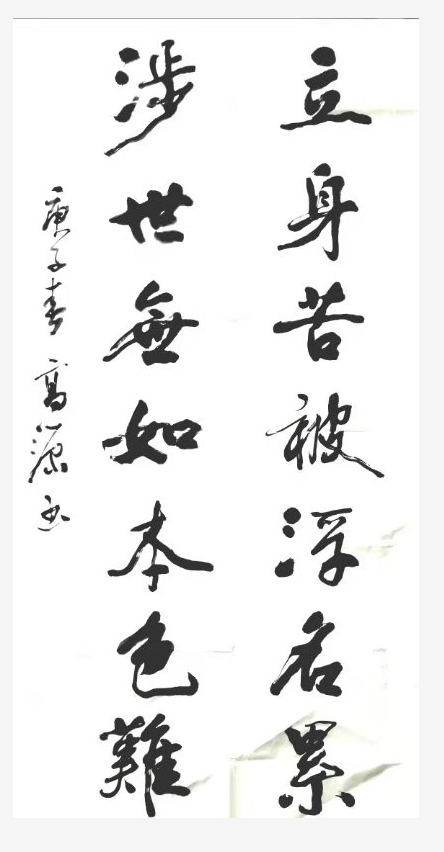 立身苦被浮名累
涉世無如本色難
庚子春 高源書